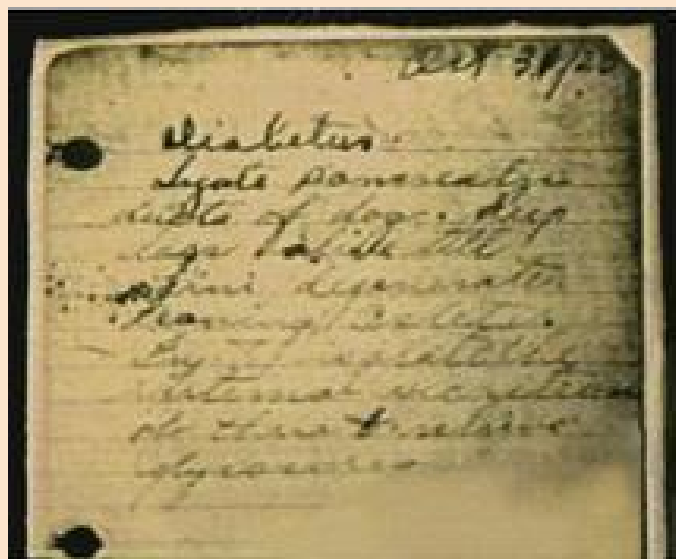 Oct 31/20
Diabetus
Ligate pancreatic
ducts of dogs. Keep
dogs alive till
acini degenerate
leaving Islets.
Try to isolate the
internal secretion
of these & relieve
glycosurea